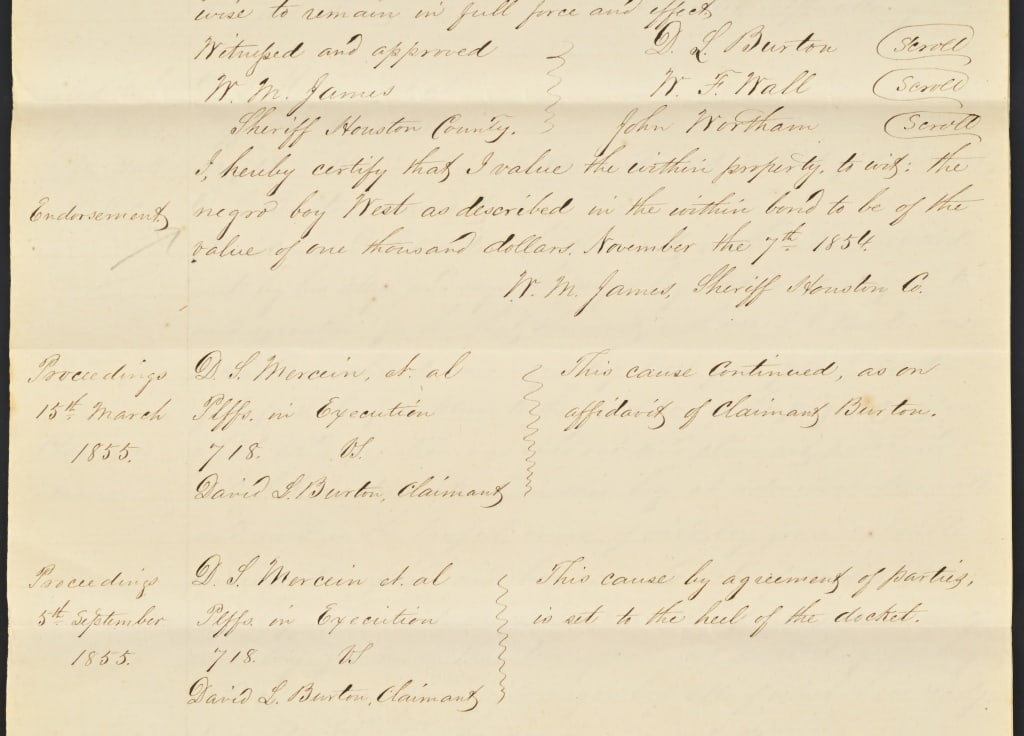 wise to remain in full force and effect
Witnessed and approved D. L. Burton Scroll
W. M. James W. F. Wall Scroll
Sheriff Houston County. John Wortham Scroll
I, hereby certify that I value the within property, to wit: the
Endorsement negro boy West as described in the within bond to be of the
value of one thousand dollars. November the 7th 1854.
W. M. James, Sheriff Houston Co.
Proceedings D. S. Mercein, et. al This cause Continued, as on
15th March Plffs. in Execution affidavit of Claimant Burton.
1855. 718. VS.
David L. Burton, Claimant
Proceedings D. S. Mercein et. al This cause by agreement of parties,
5th September Plffs. in Execution is set to the heel of the docket.
1855. 718. VS
David L. Burton, Claimant